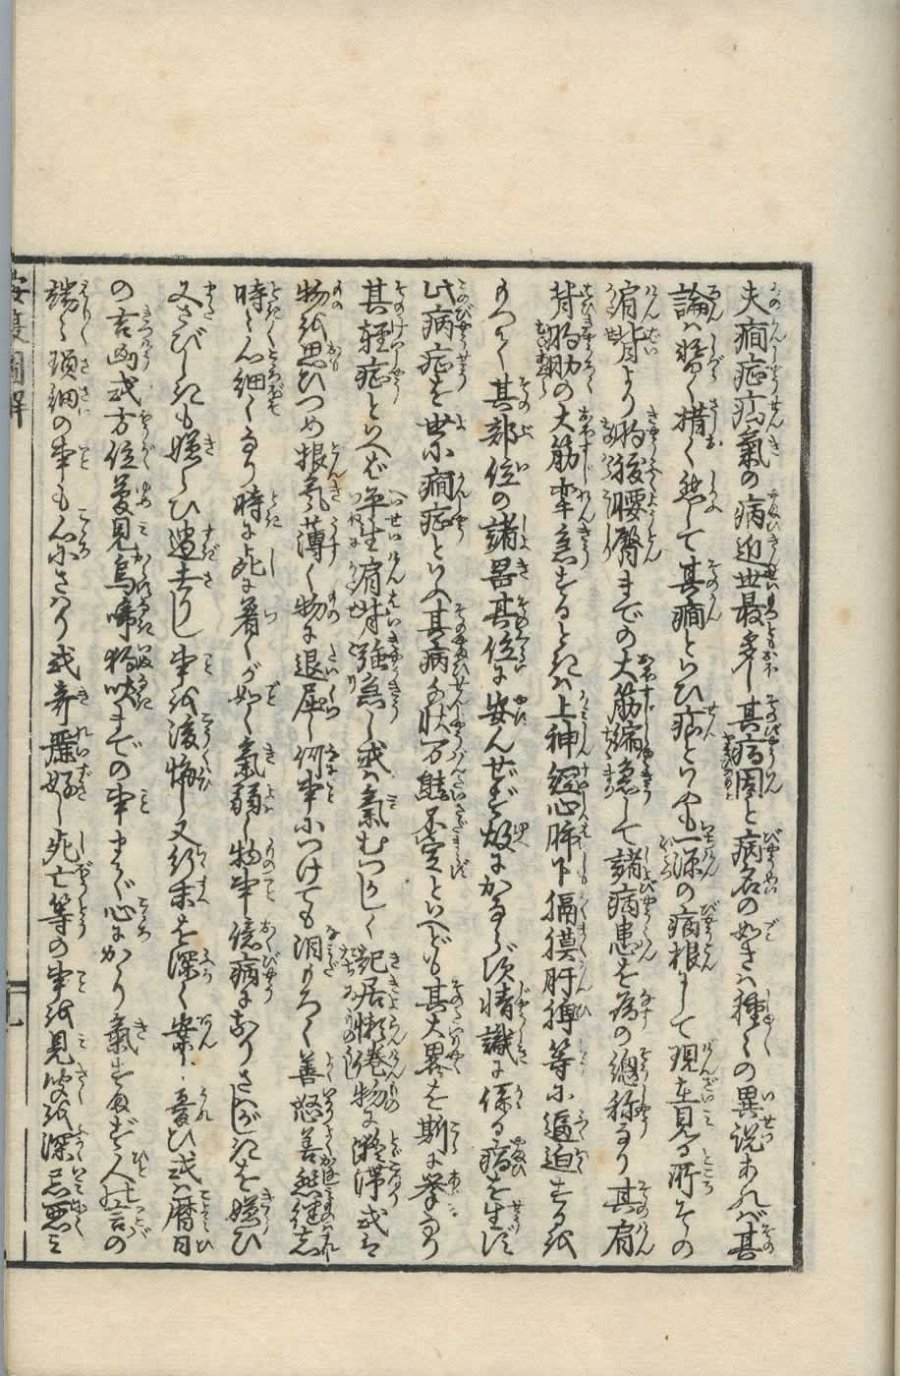 夫癇症疝氣の病近世最多し其病因と病名の如きハ種々の異説あれバ其
論ハ暫く措く然して其癇といひ疝といふも一源の病根にして現在見る所その
肩背より胸腹腰臀までの大筋縮急して諸病患を為の總称なり其肩
背胸肋の大筋牽急するときハ上神經心肺下膈膜肝脾等に逼迫するを
もつて其部位の諸器其位に安んぜず故にかならず情識に係る病を生ず
此病症を世に癇症といふ其病の状万態不定といへども其大異を斯に挙るなり
其軽症といへバ平生肩背強急し或ハ氣むつかしく起居懶惓物に凝滞或は
物を思ひつめ根氣薄く物に退屈し何事につけても泪もろく善怒善愁健忘
時々心細くなり時に死に着くが如く氣弱し物事臆病になりさハがしきを嫌ひ
又さびしきも嫌ひ過去りし事を後悔し又行末を深く案じ憂ひ或ハ暦日
の吉凶或方位夢見烏啼狗吠までの事まで心にかゝり氣もすまず人の言の
端々瑣細の事も心にさハり或奇麗好し死亡等の事を見聞を深く忌悪ミ
按腹圖解